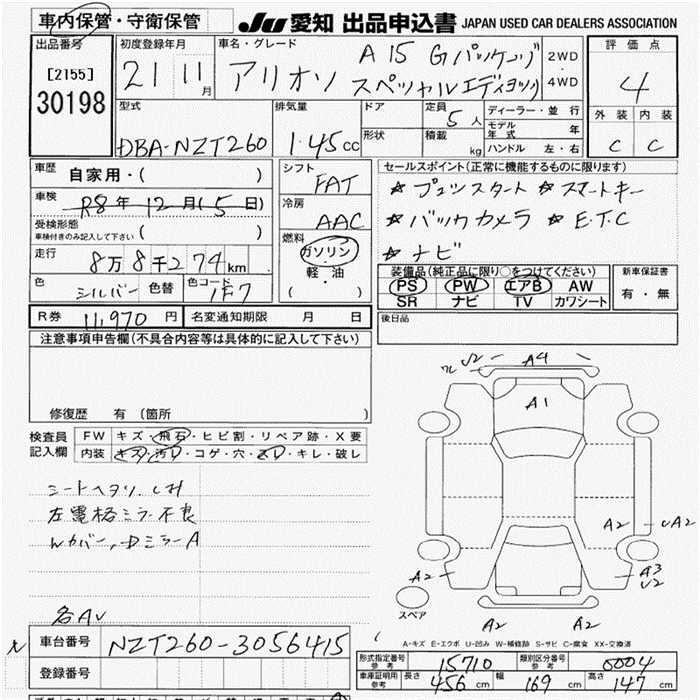 車内保管・守衛保管
JU 愛知 出品申込書 JAPAN USED CAR DEALERS ASSOCIATION
出品番号 初度登録年月 車名・グレード 評価点
[2155] 21 11月 アリオン A15 Gパッケージ 2WD
30198 スペシャルエディション 4WD 4
型式 排気量 ドア 定員 5人 ディーラー・並行 外装 内装
形状 積載 kg モデル年式 年
DBA-NZT260 1.45cc ハンドル 左・右 C C
車歴 自家用・( ) シフト FAT セールスポイント(正常に機能するものに限ります)
車検 R8年12月(5日) 冷房 AAC ☆プッシュスタート ☆スマートキー
受検形態 ( ) ☆バックカメラ ☆E.T.C
車検付きのみ記入して下さい 燃料 ☆ナビ
走行 8万8千274km ガソリン 装備品(純正品に限り○をつけてください) 新車保証書
軽・油 PS PW エアB AW 有・無
色 シルバー 色替 色コード 1F7 ( ) SR ナビ TV カワシート
R券 11,970円 名変通知期限 月 日 後日品
注意事項申告欄(不具合内容等は具体的に記入して下さい)
修復歴 有 (箇所 )
検査員 FW キズ・飛石・ヒビ割・リペア跡・X要
記入欄 内装 キズ・汚レ・コゲ・穴・スレ・キレ・破レ
左電格ミラー不良
各AV
U2 A4
A1
A2 UA2
A2 A3
U2
スペア
A2 A2
A-キズ E-エクボ U-凹み W-補修跡 S-サビ C-腐食 XX-交換済
車台番号 NZT260-3056415
形式指定番号 参考 15710 類別区分番号 参考 0004
登録番号 車庫証明用 参考 長さ 456cm 幅 169cm 高さ 147cm